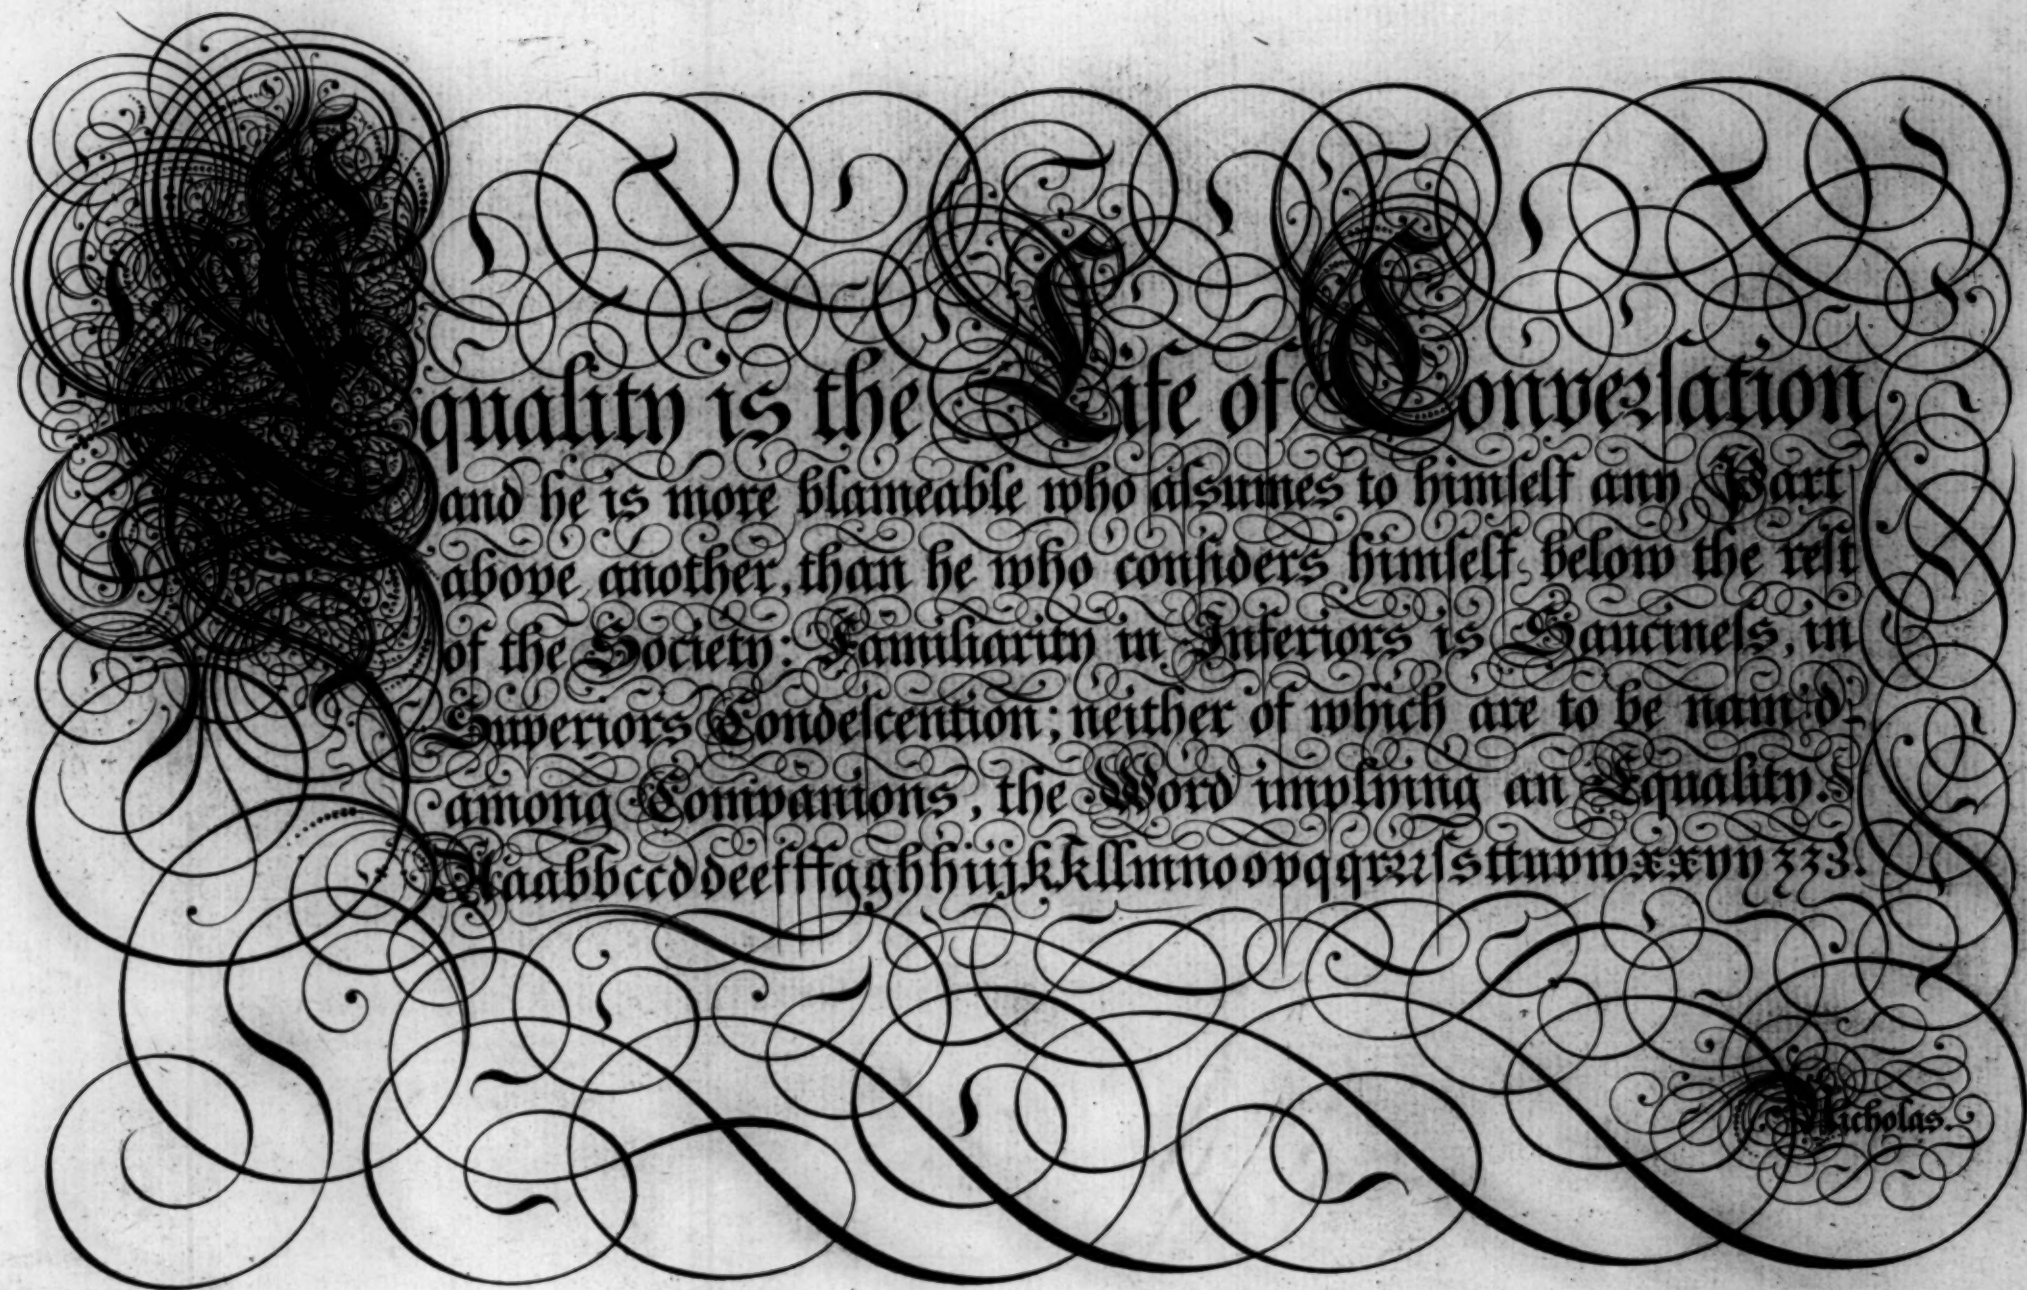 Equality is the Life of Converſation
and he is more blameable who aſsumes to himſelf any Part
above another, than he who conſiders himſelf below the reſt
of the Society: Familiarity in Inferiors is Saucineſs, in
Superiors Condeſcention; neither of which are to be nam'd
among Companions, the Word implying an Equality.
Aaabbccddeefffgghhiijkkllmnoopqqrzzſsttuvwxxyyzz3.
Nicholas.